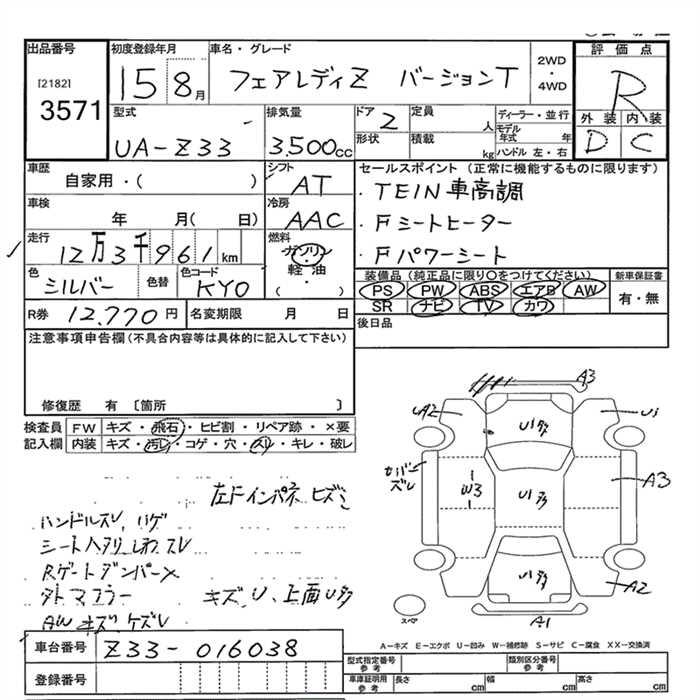 出品番号
[2182]
3571
初度登録年月
15 8月
車名・グレード
フェアレディZ バージョンT
2WD
・
4WD
評価点
R
外装 内装
D C
型式
UA-Z33
排気量
3,500cc
ドア
2
定員
人
形状
積載
kg
ディーラー・並行
モデル年式 年
ハンドル 左・右
車歴
自家用・( )
シフト
AT
車検
年 月( 日)
冷房
AAC
走行
12万3千961km
燃料
ガソリン
・
軽油
( )
色
シルバー
色替
色コード
KY0
R券 12,770円
名変期限 月 日
セールスポイント(正常に機能するものに限ります)
・TEIN車高調
・Fシートヒーター
・Fパワーシート
装備品(純正品に限り○をつけてください)
PS PW ABS エアB AW
SR ナビ TV カワ
新車保証書
有・無
後日品
注意事項申告欄(不具合内容等は具体的に記入して下さい)
修復歴 有〔箇所 〕
検査員記入欄
FW キズ・飛石・ヒビ割・リペア跡・×要
内装 キズ・汚レ・コゲ・穴・スレ・キレ・破レ
左Fインパネ ヒズミ
ハンドルスレ、ハゲ
シートヘタリ、しわ、スレ
Rゲートダンパー×
外マフラー
キズ、U、上面Uタタ
AWキズ、ケズレ
A3
A2
U1
U1タタ
カバーズレ
W3
U1タタ
A3
U1タタ
A2
A1
スペア
A-キズ E-エクボ U-凹み W-補修跡 S-サビ C-腐食 XX-交換済
車台番号 Z33-016038
登録番号
型式指定番号
参考
類別区分番号
参考
車庫証明用
参考
長さ cm
幅 cm
高さ cm